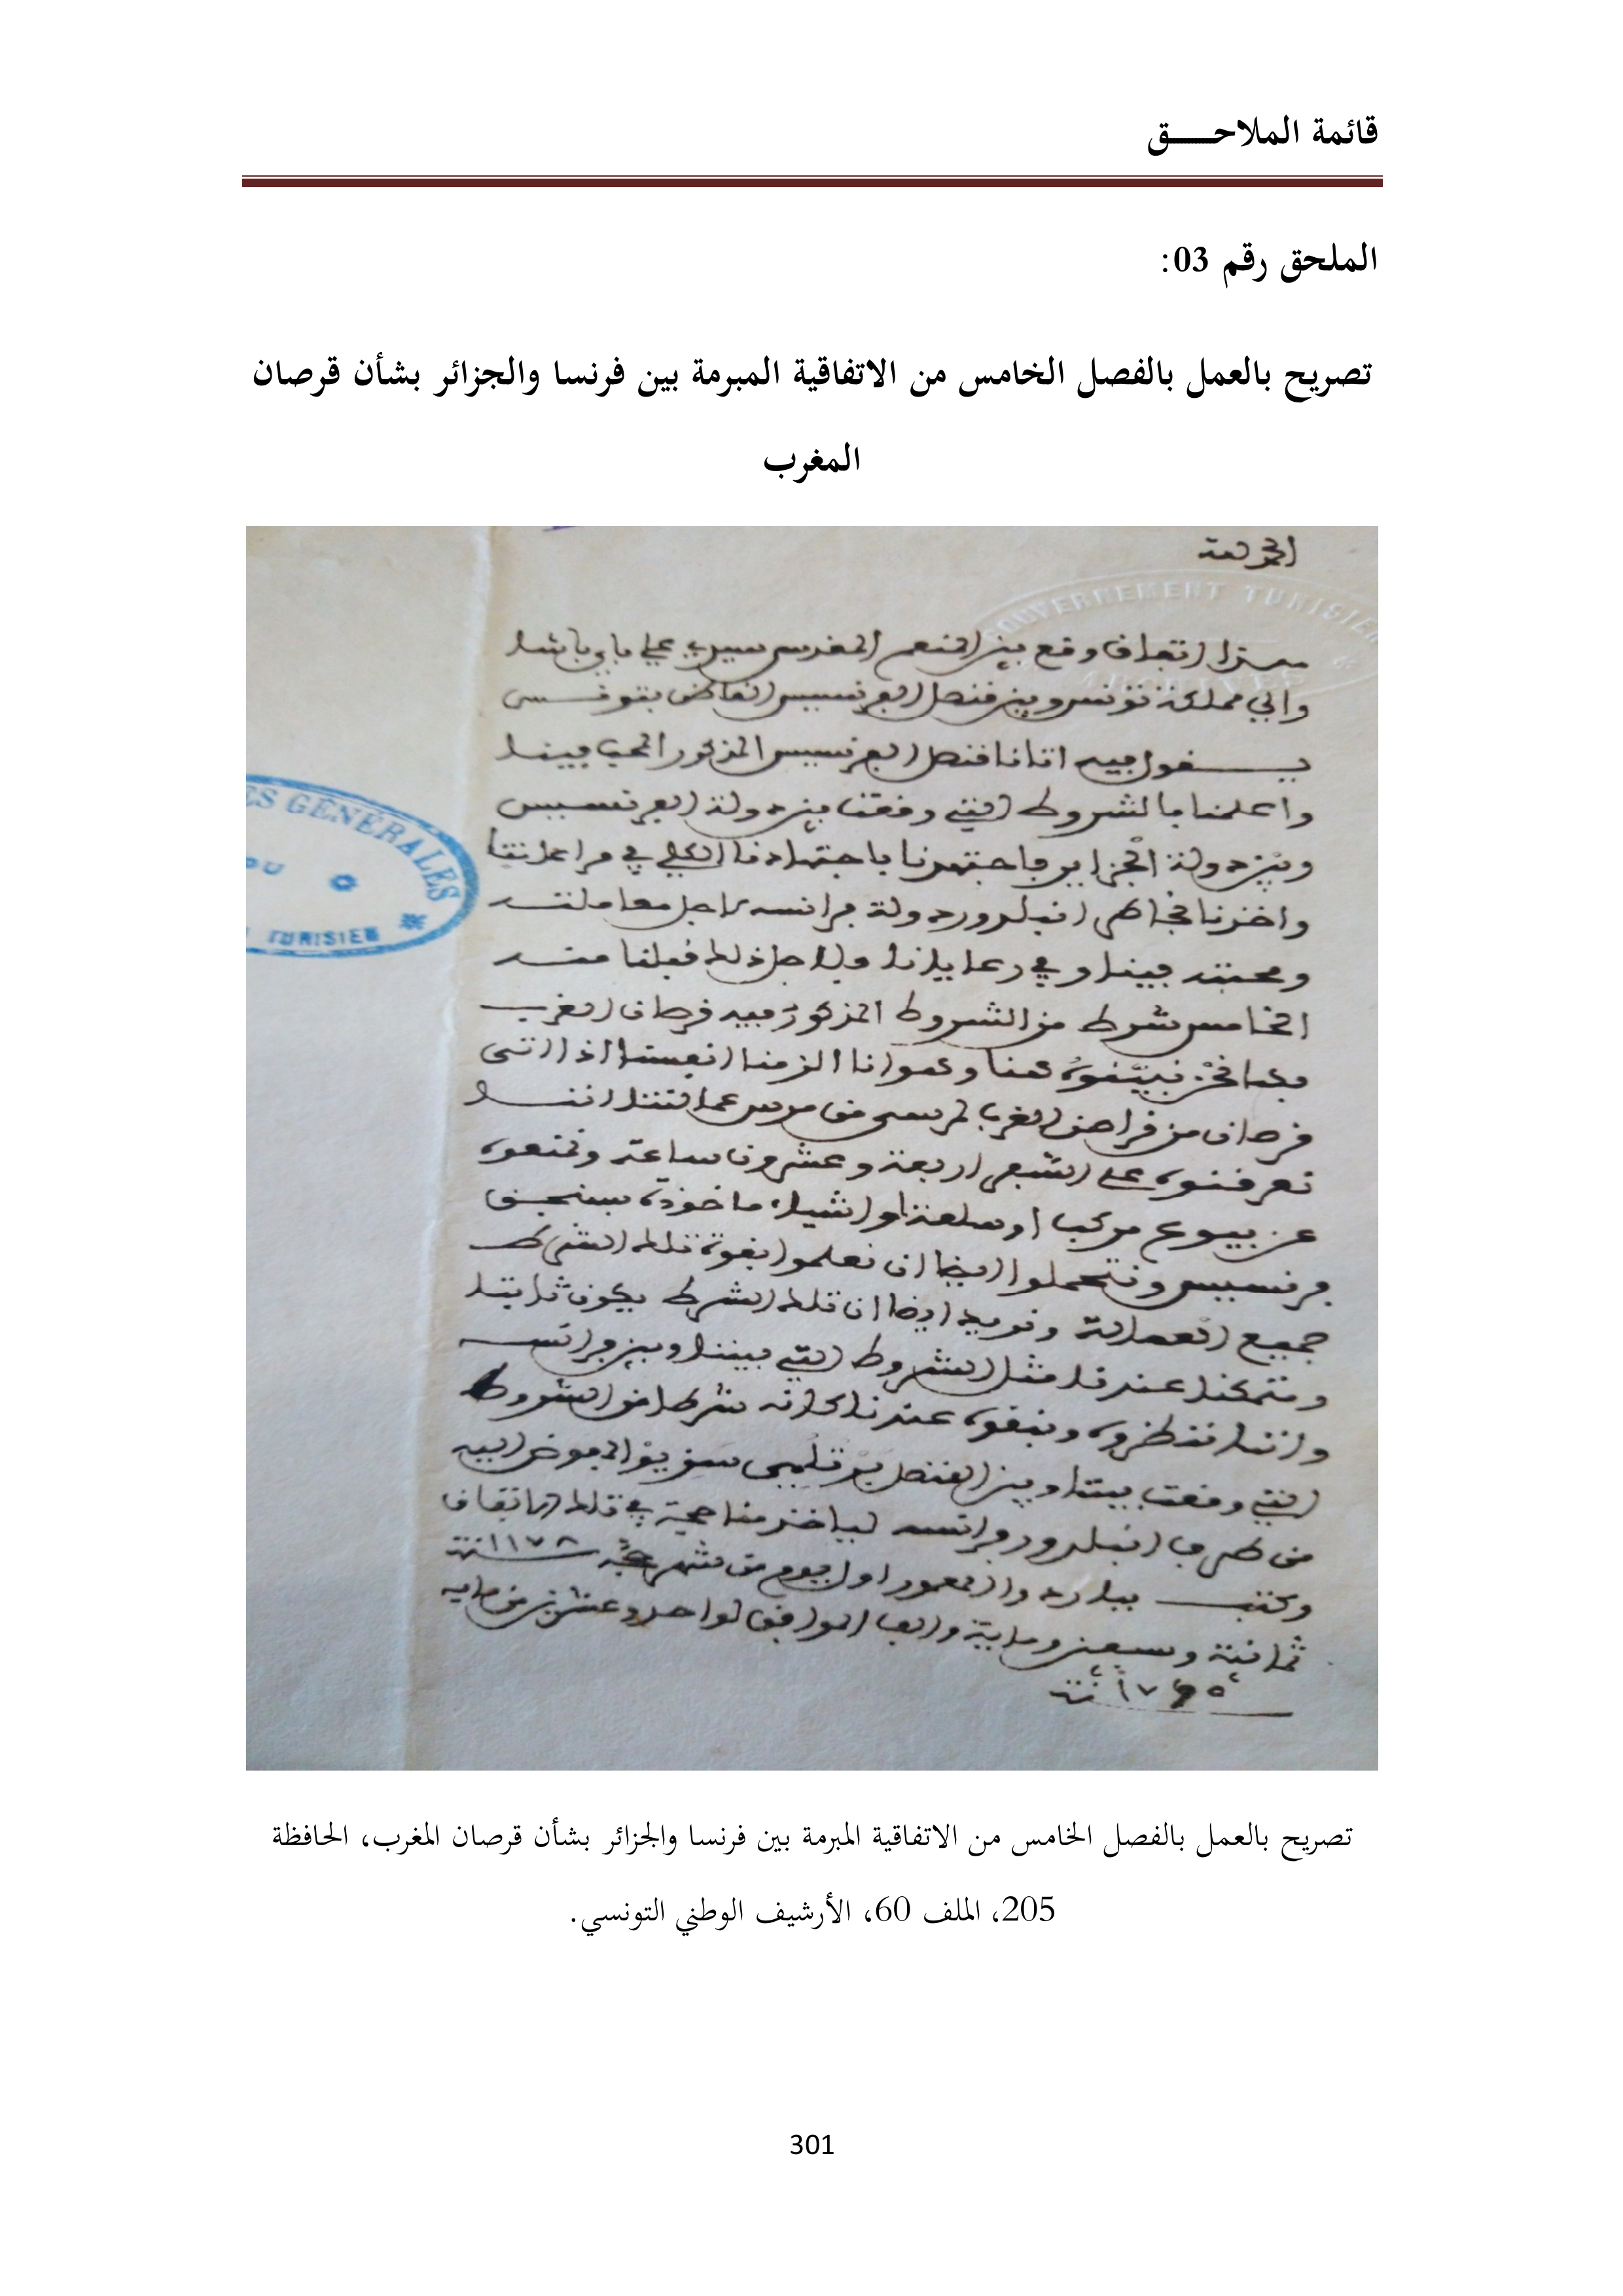 قائمة الملاحـــــق
الملحق رقم 03:
تصريح بالعمل بالفصل الخامس من الاتفاقية المبرمة بين فرنسا والجزائر بشأن قرصان
المغرب
الحمد لله
GOUVERNEMENT TUNISIEN
ARCHIVES
هذا اتفاق وقع بين المنعم المقدس سيدي علي باي باشا
والي مملكة تونس وبين قنصل الفرنسيس القاضي بتونس
يقول فيه اتانا قنصل الفرنسيس المذكور المحب فينا
واعلمنا بالشروط التي وقعت بين دولة الفرنسيس
ES GENERALES
DU
TUNISIEN
وبين دولة الجزاير فاجتهدنا باجتهادنا الكلي في
واخذنا خاطر انبلدور دولة فرانسه لاجل معاملته
ومحبته فينا وفي رعايانا ولاجل ذلك قبلنا منه
الخامس شرط من الشروط المذكور فيه قرصان الغرب
نحن عنا وهو انا الزمنا انفسنا اذا اتى
قرصان من قراصن الغرب لمرسى من مرس عمالتنا اننا
على اربعة وعشرون ساعة ونمنعوه
عن بيوع مركب او سلعة او اشياء ماخوذة
فرنسيس ونتحملوا ايضا ان نعلموا بقوة تلك الشرط
جميع العمالة ونريد ايضا ان تلك الشرط يكون ثابتا
ومتمكنا عندنا مثل الشروط التي بيننا وبين فرانسه
واننا ننظروه ونبقوه عندنا كانه شرط من الشروط
التي وقعت بيننا وبين القنصل المفوض اليه
من طرف انبلدور فرانسه لياخذ منا صحة في تلك الاتفاق
وكتب بباردو المعمور اول يوم من شهر حجة سنة ١١٧٨
ثمانية وسبعين وماية والف الموافق لواحد وعشرين من مايه
سنة ١٧٦٥
تصريح بالعمل بالفصل الخامس من الاتفاقية المبرمة بين فرنسا والجزائر بشأن قرصان المغرب، الحافظة
205، الملف 60، الأرشيف الوطني التونسي.
301